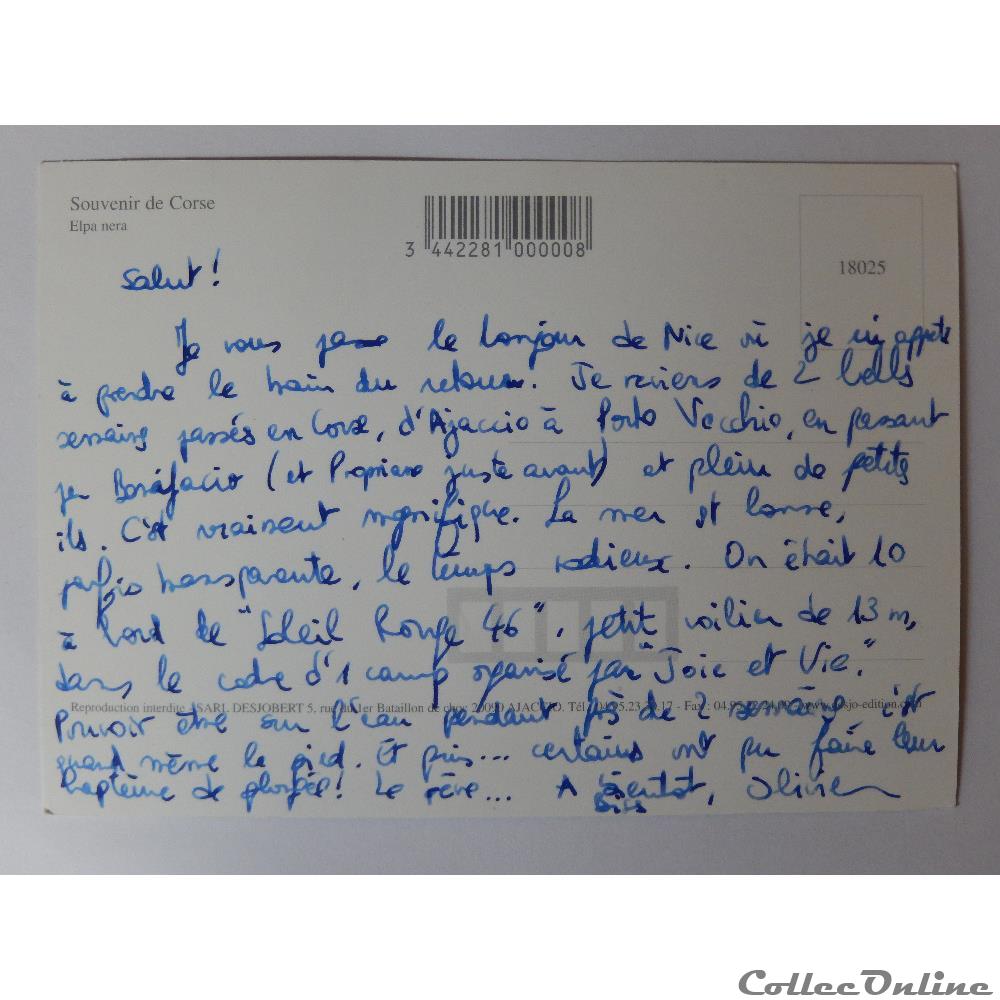 Souvenir de Corse
Elpa nera
3 442281 000008
18025
Salut !
Je vous passe le bonjour de Nice où je m'apprête
à prendre le train du retour. Je reviens de 2 belles
semaines passés en Corse, d'Ajaccio à Porto Vecchio, en passant
par Bonifacio (et Propriano juste avant) et plein de petites
îles. C'est vraiment magnifique. La mer est bonne,
parfois transparente, le temps radieux. On était 10
à bord de "Soleil Rouge 46", petit voilier de 13 m,
dans le cadre d'1 camp organisé par "Joie et Vie."
Reproduction interdite SARL DESJOBERT 5, rue du 1er Bataillon de choc 20090 AJACCIO. Tél. 04.95.23. .17 - Fax : 04.95.
Pouvoir être sur l'eau pendant près de 2 semaines c'est
quand même le pied. Et puis... certains ont pu faire leur
baptême de plongée ! Le rêve... A bientôt, Olivier
Bises
CollecOnline